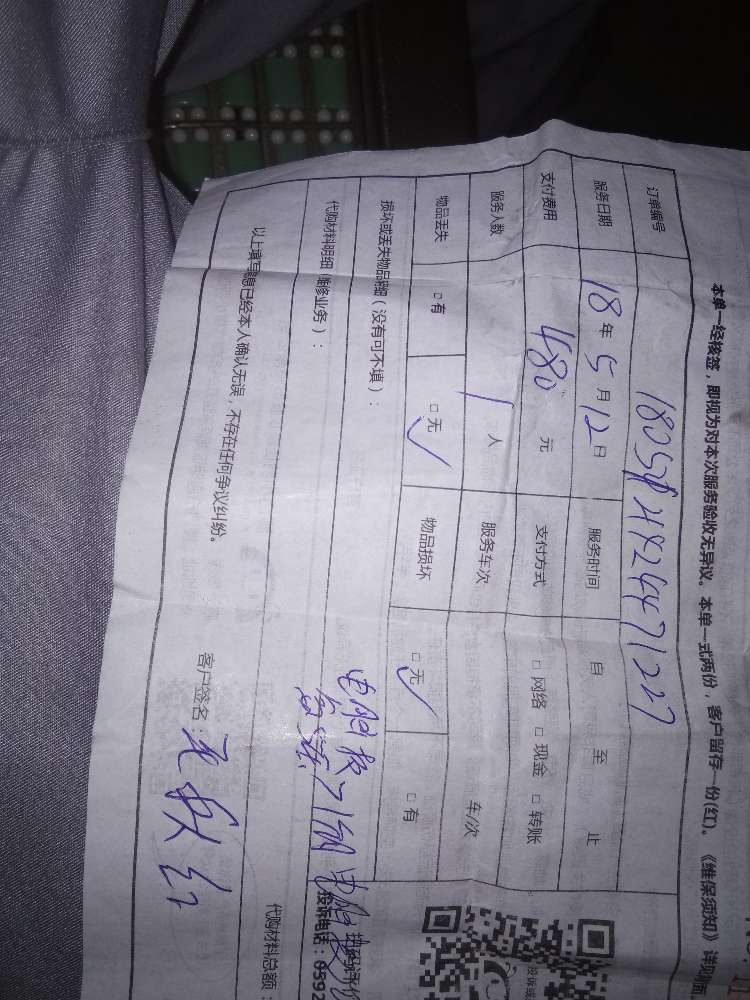 本单一经核签，即视为对本次服务验收无异议。本单一式两份，客户留存一份(红)。《维保须知》详见
订单编号
服务日期 18 年 5 月 12 日 服务时间 自 至 止
支付费用 480 元 支付方式 □ 网络 □ 现金 □ 转账
服务人数 1 人 服务车次 车/次
物品丢失 □ 有 □ 无 ✓ 物品损坏 □ 无 ✓ □ 有
损坏或丢失物品明细（没有可不填）：
代购材料明细（维修业务）：
代购材料总额：
以上填写信息已经本人确认无误，不存在任何争议纠纷。
客户签名：
投诉电话：0592